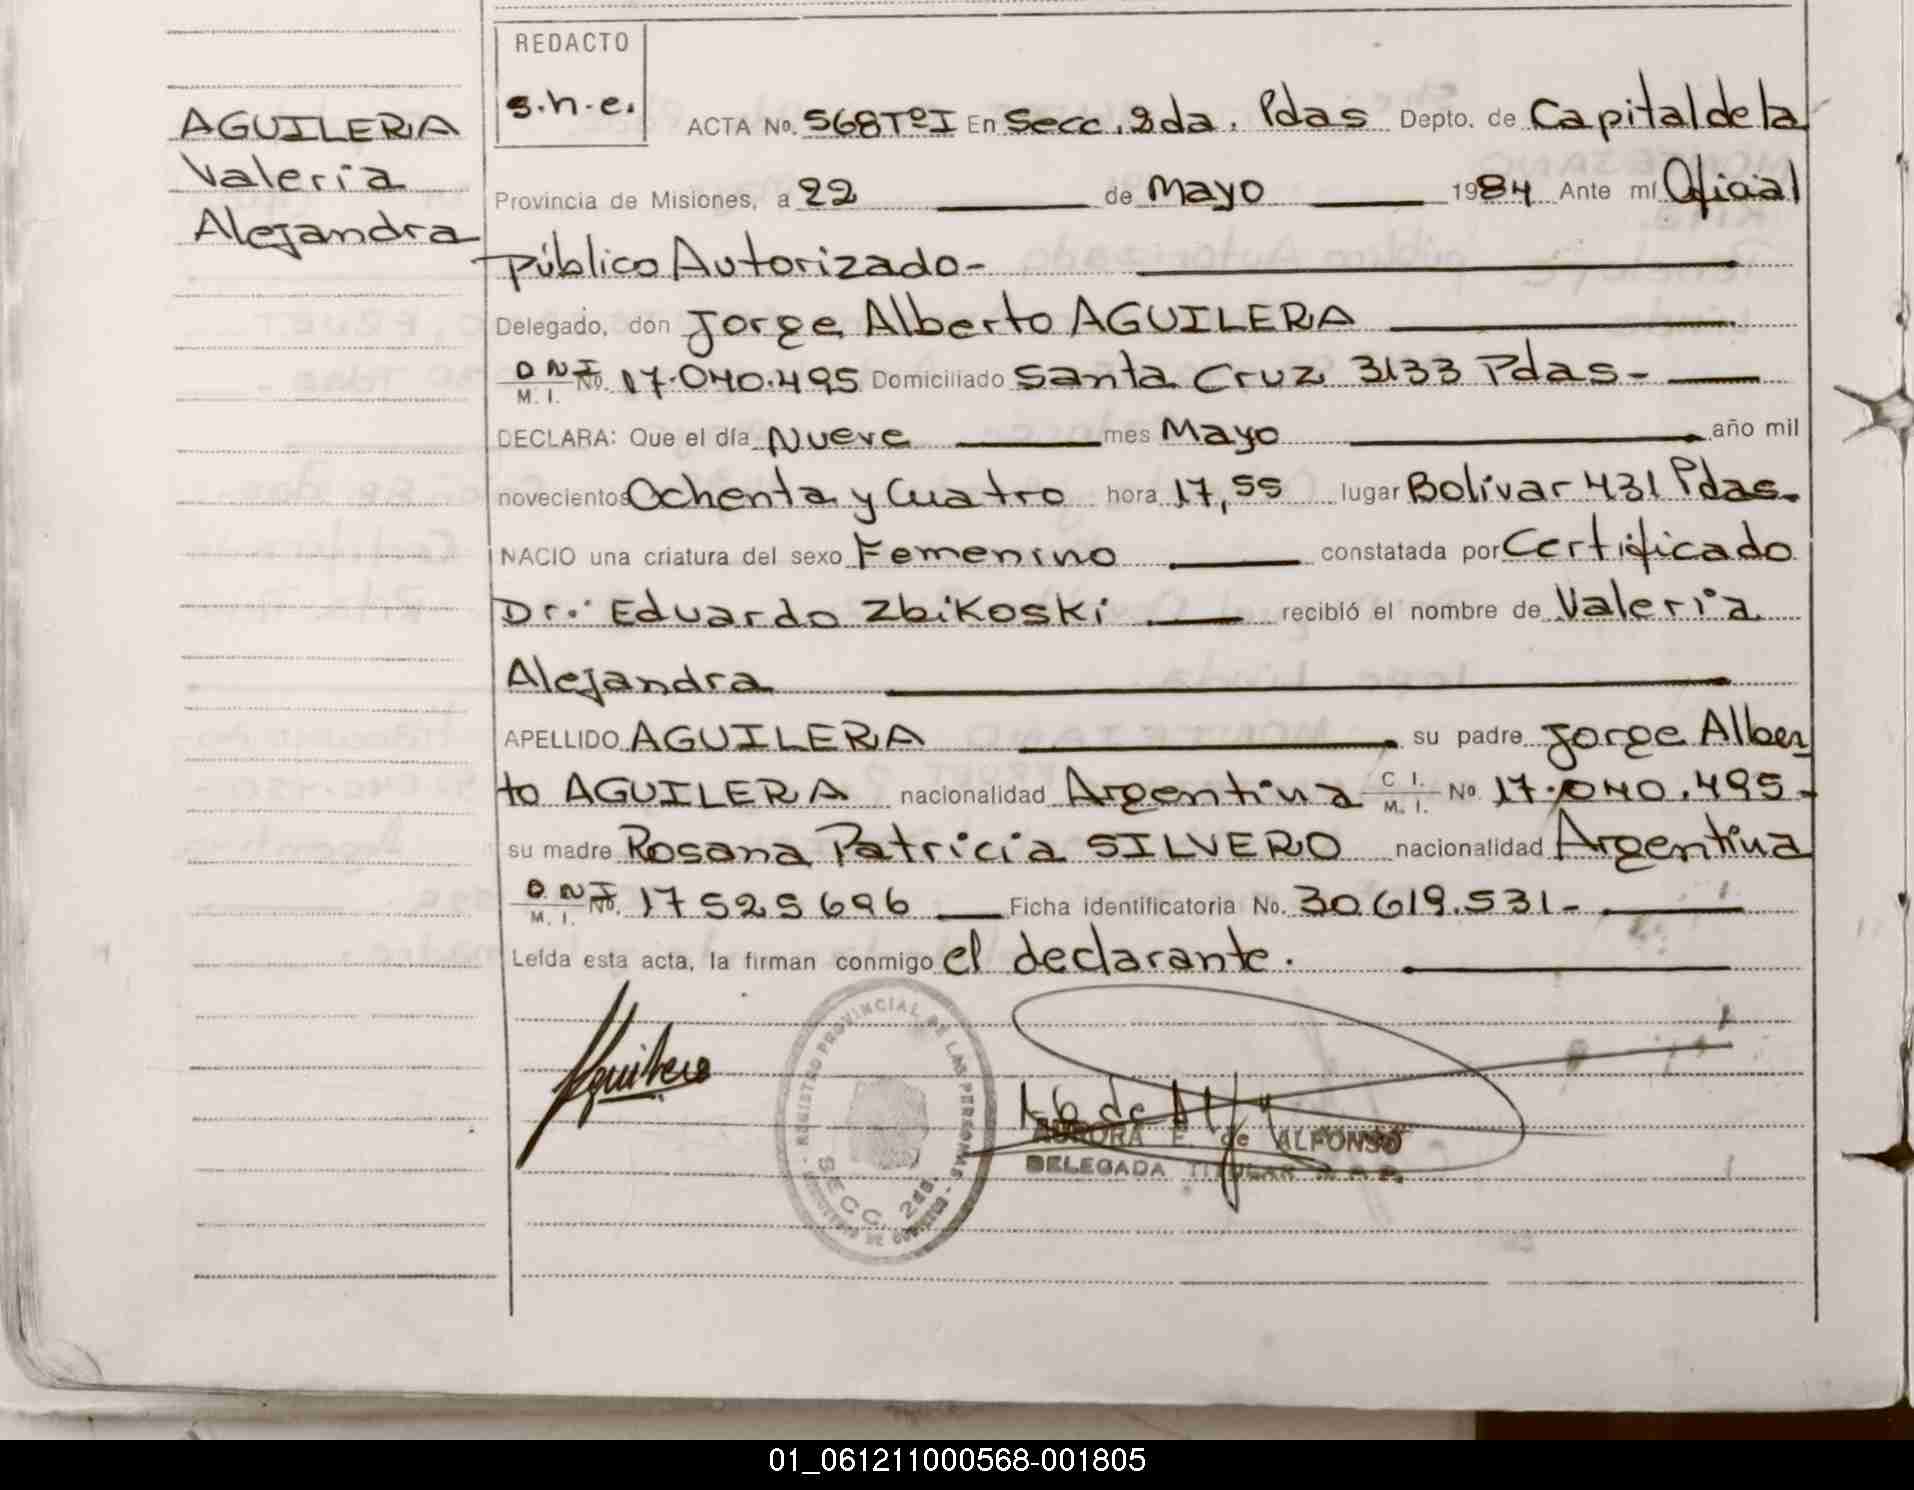 AGUILERIA
Valeria
Alejandra
REDACTO
s.h.e.
ACTA No. 568TºI En Secc. 2da. Pdas Depto. de Capital de la
Provincia de Misiones, a 22 de Mayo 1984 Ante mí Oficial
público Autorizado-
Delegado, don Jorge Alberto AGUILERA
DNI No. 17.040.495 Domiciliado Santa Cruz 3133 Pdas-
M. I.
DECLARA: Que el día Nueve mes Mayo año mil
novecientos Ochenta y Cuatro hora 17,55 lugar Bolívar 431 Pdas.
NACIO una criatura del sexo Femenino constatada por Certificado
Dr. Eduardo Zbikoski recibió el nombre de Valeria
Alejandra
APELLIDO AGUILERA su padre Jorge Alber
to AGUILERA nacionalidad Argentina C. I. M. I. No. 17.040.495-
su madre Rosana Patricia SILVERO nacionalidad Argentina
DNI No. 17525696 Ficha identificatoria No. 30.619.531-
M. I.
Leída esta acta, la firman conmigo el declarante.
REGISTRO PROVINCIAL DE LAS PERSONAS
SECC. 2da
AURORA E. de ALFONSO
DELEGADA TITULAR
01_061211000568-001805